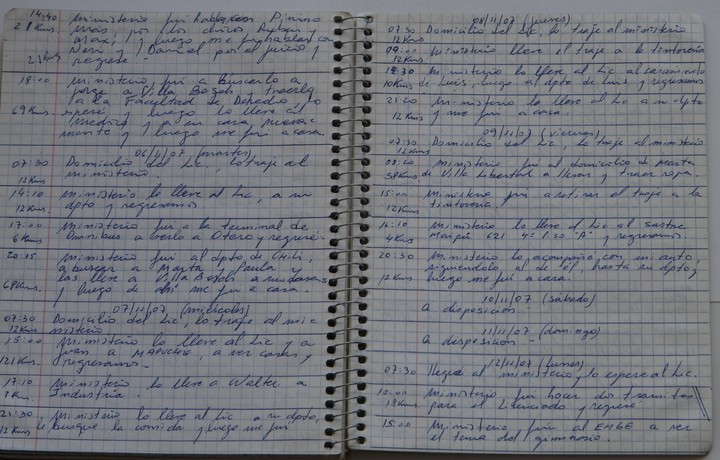 14:40 Ministerio fui
28 Kms más por los chicos, Ruben
y luego me
Neri y Daniel por el juicio y
regresé -
18:00 Ministerio, fui a buscarlo a
Jorge a Villa Bosch, y traerlo
a la Facultad de Derecho, lo
69 Kms esperé y luego lo llevé al
y a su casa,
mente y luego me fui a casa
06/11/07 (martes)
07:30 Domicilio del Lic, lo traje al
12 Kms ministerio.
14:10 Ministerio lo lleve al Lic, a su
12 Kms. dpto y regresamos
17:00 Ministerio fui a la terminal de
6 Kms Omnibus a verlo a Otero y regresé.
20:15 Ministerio fui al dpto de Chili,
a buscar a Marta, Paula y
las lleve a Villa Bosch a sus casas
68 Kms. y luego de ahi me fui a casa.
07/11/07 (miercoles)
07:30 Domicilio del Lic, lo traje al mi
12 Kms nisterio
15:00 Ministerio lo lleve al Lic y a
Juan a MAPUCHE, a ver casas y
121 Kms. regresamos.
17:10 Ministerio lo lleve a Walter a
8 Kms Industria.
21:30 Ministerio lo lleve al Lic a su dpto,
12 Kms le busque la comida y luego me fui
08/11/07 (jueves)
07:30 Domicilio del Lic, lo traje al ministerio
12 Kms
09:00 Ministerio lleve el traje a la tintoreria
12 Kms
18:30 Ministerio lo lleve al Lic al casamiento
10 Kms de Luis, luego al dpto de y regresamos
21:00 Ministerio lo lleve al Lic a su dpto
12 Kms y me fui a casa.
09/11/07 (viernes)
07:30 Domicilio del Lic, lo traje al ministerio
12 Kms
Ministerio fui al domicilio de Marta
58 Kms de Villa Libertad a llevar y traer ropa.
15:00 Ministerio fui a retirar el traje a la
12 Kms tintoreria.
16:10 Ministerio lo lleve al Lic al sastre
4 Kms Maipú 621 4º Piso "A" y regresamos.
20:30 Ministerio lo acompañe con mi auto,
siguiendolo a el de él, hasta su dpto y
12 Kms luego me fui a casa.
10/11/07 (sabado)
A disposicion -
11/11/07 (domingo)
A disposicion -
12/11/07 (lunes)
07:30 llegué al ministerio y lo esperé al Lic.
12:00 Ministerio, fui hacer dos tramites
18 Kms para el Licenciado y regresé.
15:00 Ministerio fui al EMGE a ver
el tema del gimnasio.